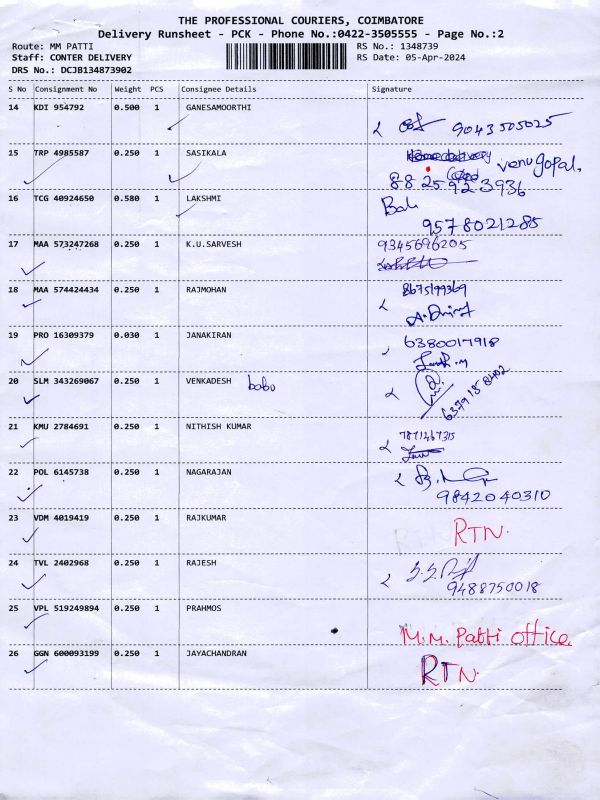 THE PROFESSIONAL COURIERS, COIMBATORE
Delivery Runsheet - PCK - Phone No.:0422-3505555 - Page No.:2
Route: MM PATTI
RS No.: 1348739
Staff: CONTER DELIVERY
RS Date: 05-Apr-2024
DRS No.: DCJB134873902
S No Consignment No Weight PCS Consignee Details Signature
14 KDI 954792 0.500 1 GANESAMOORTHI
9043505025
15 TRP 4985587 0.250 1 SASIKALA
venugopal,
88 25 923936
16 TCG 40924650 0.580 1 LAKSHMI
9578021285
17 MAA 573247268 0.250 1 K.U.SARVESH 9345696205
18 MAA 574424434 0.250 1 RAJMOHAN 8675199369
19 PRO 16309379 0.030 1 JANAKIRAN 6380017918
20 SLM 343269067 0.250 1 VENKADESH babu
6379158402
21 KMU 2784691 0.250 1 NITHISH KUMAR
22 POL 6145738 0.250 1 NAGARAJAN
9842040310
23 VDM 4019419 0.250 1 RAJKUMAR RTN.
24 TVL 2402968 0.250 1 RAJESH
9488750018
25 VPL 519249894 0.250 1 PRAHMOS
M.M. Patti office
26 GGN 600093199 0.250 1 JAYACHANDRAN RTN.